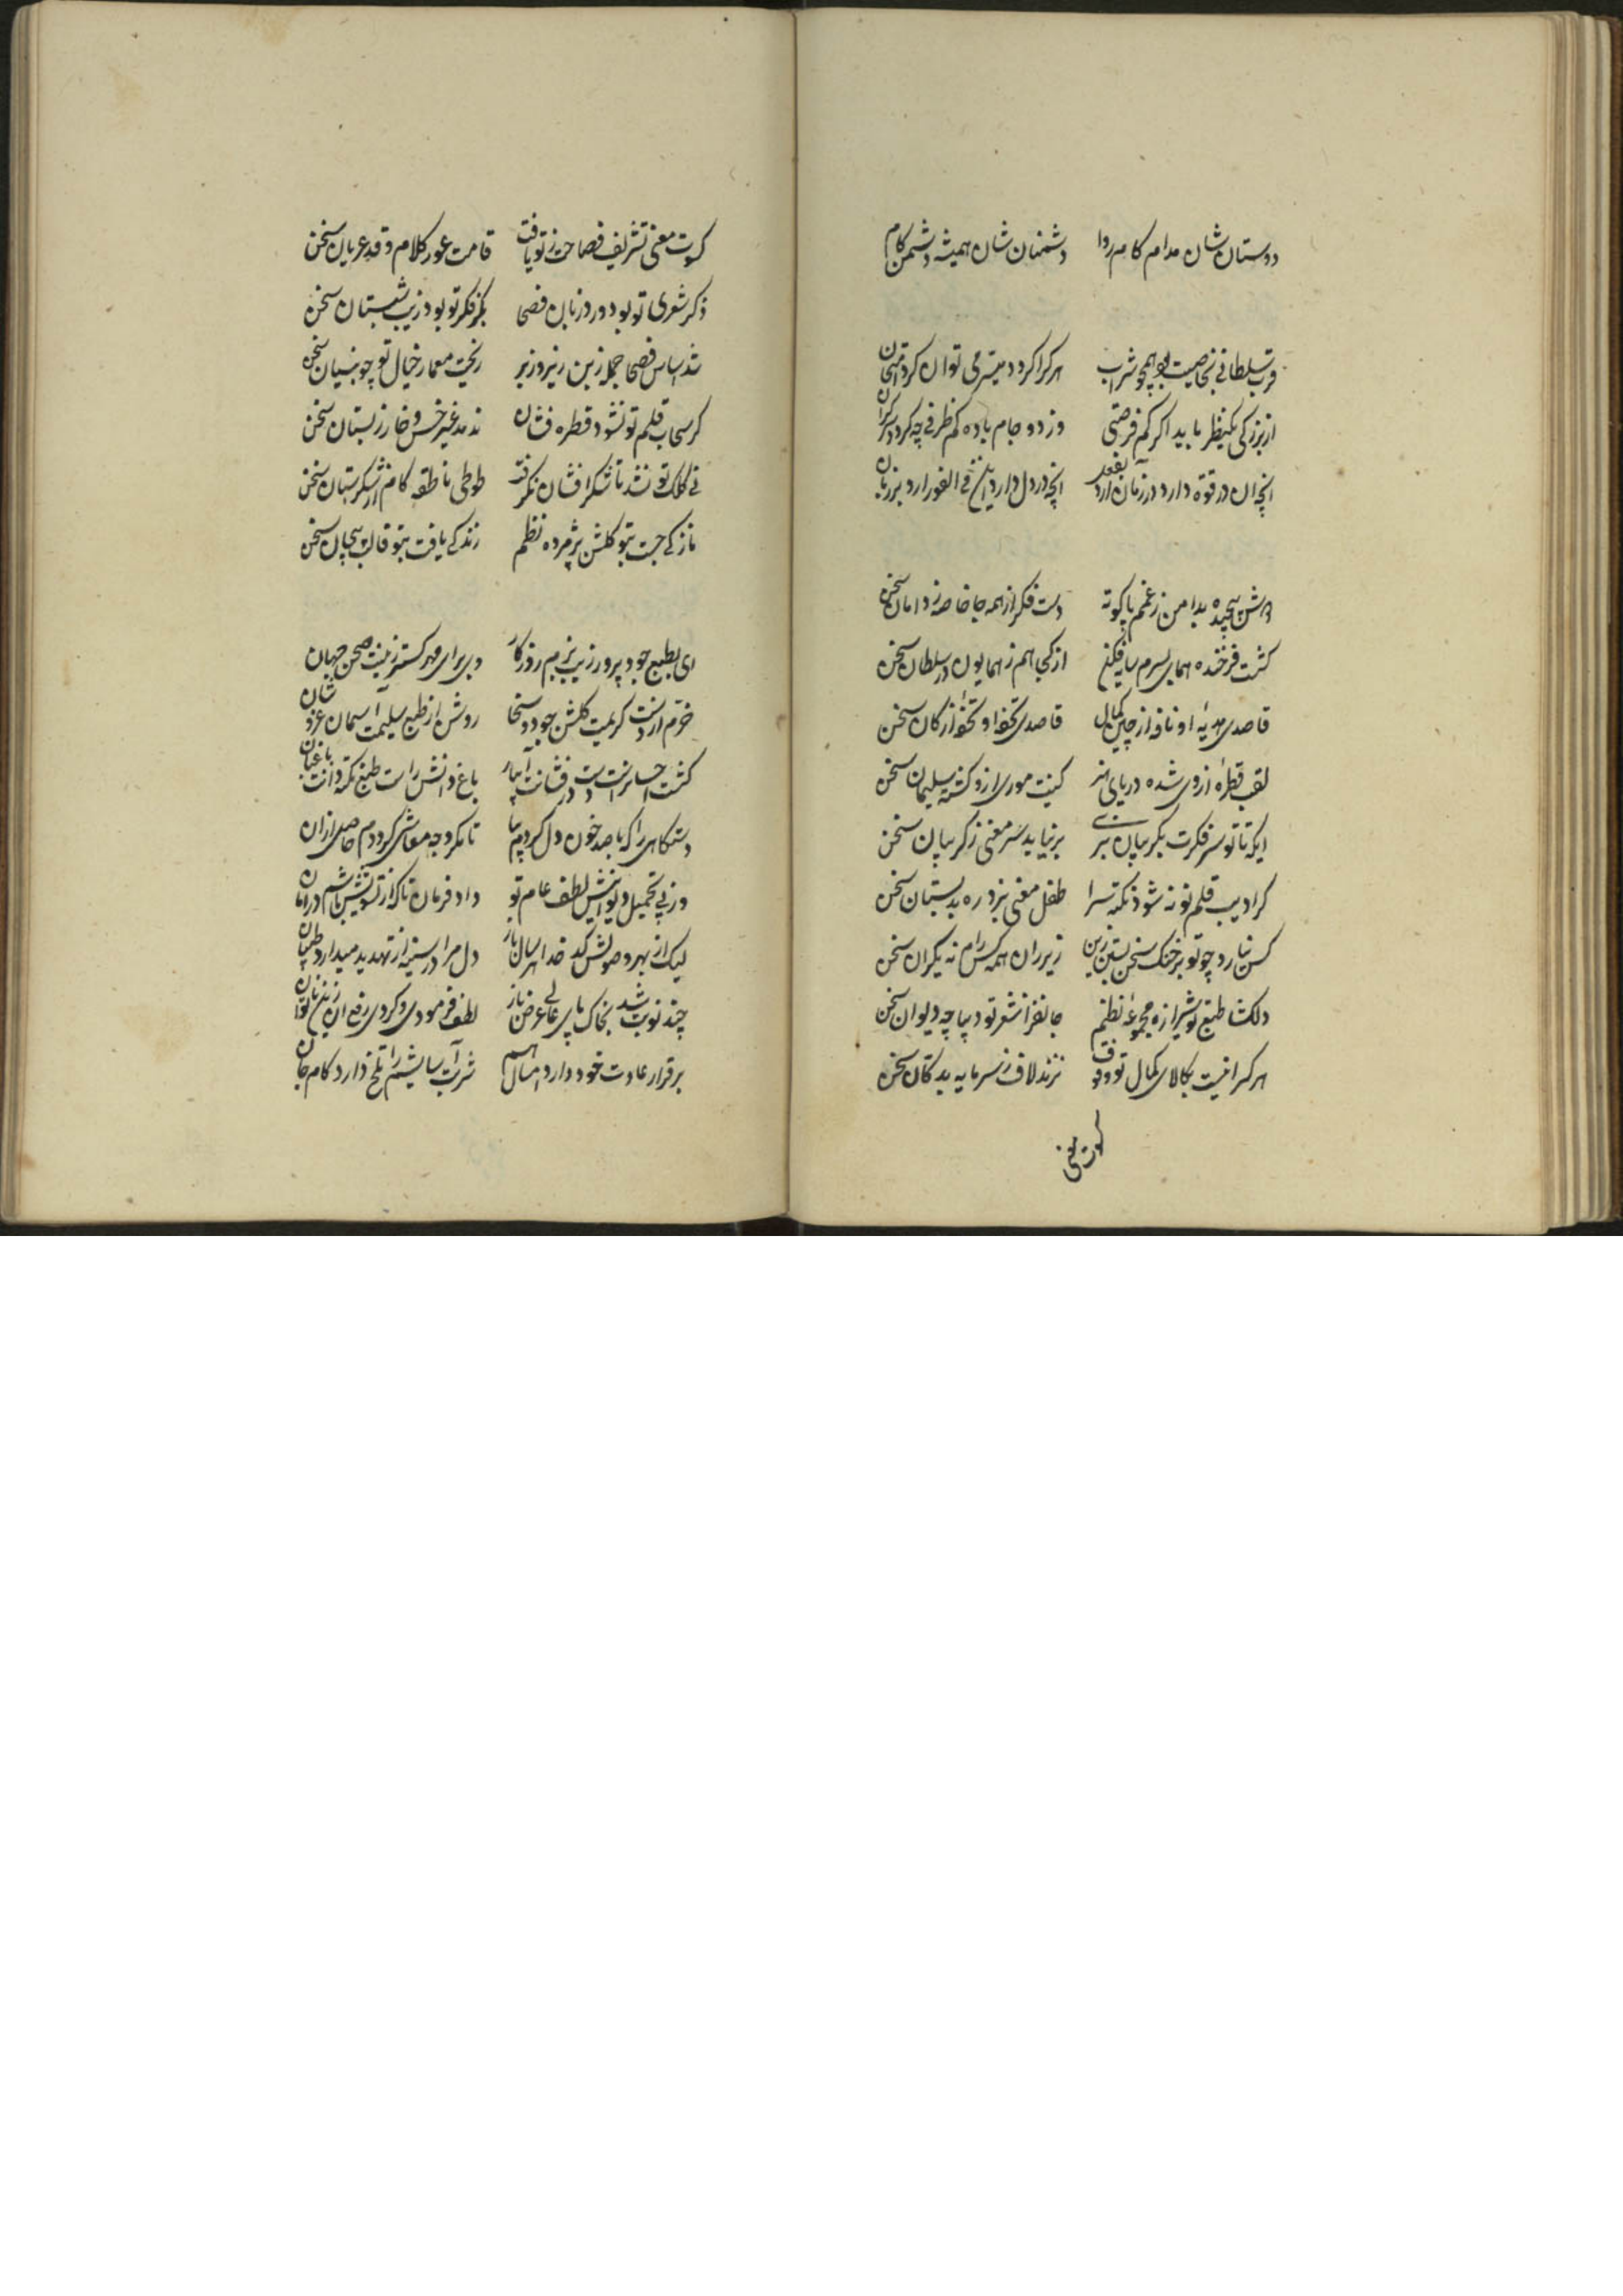 دوستان شان مدام کام روا دشمنان شان همیشه دشمن کام
قرب سلطانی بخاصیت بود همچو شراب هر کرا کردد میسر می توان کرد امتحان
از بزرکی یکنظر باید اکر کم فرصتی وز دو جام باده کم ظرفی چه کردد سرکران
انچه ان در قوه دارد در زمان آرد بفعل انچه در دل دارد این فی الفور ارد بر زبان
پیچیده بدامن زغم پا کوته دست فکر از همه جا خاصه ز دامان سخن
کشت فرخنده همای بسرم سایه فکن از کجا هم ز همایون در سلطان سخن
قاصدی هدیهٔ او نافه از چین کمال قاصدی تحفهٔ او تحفه از کان سخن
لقب قطرهٔ ازوی شده دریای هنر کینت موری ازو کشته سلیمان سخن
ایکه تا تو سر فکرت بکریبان نبری بر نیاید سر معنی ز کریبان سخن
کر ادیب قلم تو نه شود نکته سرا طفل معنی نبرد ره بدبستان سخن
کس نیارد چو تو بر خنک سخن بستن زین زیر ران همه کس رام نه یکران سخن
دلکشا طبع تو شیرازه مجموعهٔ نظم جانفزا شعر تو دیباچه دیوان سخن
هر کرا نیست بکالای کمال تو وقوف نزند لاف ز سرمایه بدکان سخن
کسوت معنی
کسوت معنی تشریف فصاحت ز تو یافت قامت عور کلام و قد عریان سخن
ذکر شعری تو بود ورد زبان فصحا بکر فکر تو بود زیب شبستان سخن
شد اساس فصحا جمله زبن زیر و زبر ریخت معمار خیال تو چو بنیان سخن
کر سحاب قلم تو نشود قطره فشان ندمد غیر خس و خار ز بستان سخن
نی کلک تو نشد تا شکر افشان نکرفت طوطی ناطقه کام از شکرستان سخن
تازکی جست بتو کلشن پژمرده نظم زندکی یافت بتو قالب بیجان سخن
ای بطبع جود پرور زیب بزم روزکار وی برای مهر کستر زینت صحن جهان
خرم از دست کریمت کلشن جود و سخا روشن از طبع سلیمت آسمان عز و شان
کشت احسانراست دست در فشانت آبیار باغ دانش راست طبع نکته دانت باغبان
دستکاهی را که با صد خون دل کردم بپا تا مکر وجه معاشی کرددم حاصل ازان
وز پی تحمیل دیوانیش لطف عام تو داد فرمان تا که از تشویش باشم در امان
لیک از بهر وصولش کدخدا هر سال باز دل مرا در سینه از تهدید میدارد طپان
چند نوبت شد بخاک پای عالی عرض ناز لطف فرمودی و کردی رفع ان
برقرار عادت خود دارد امسال هم شربت آسایشم را تلخ دارد کام جان